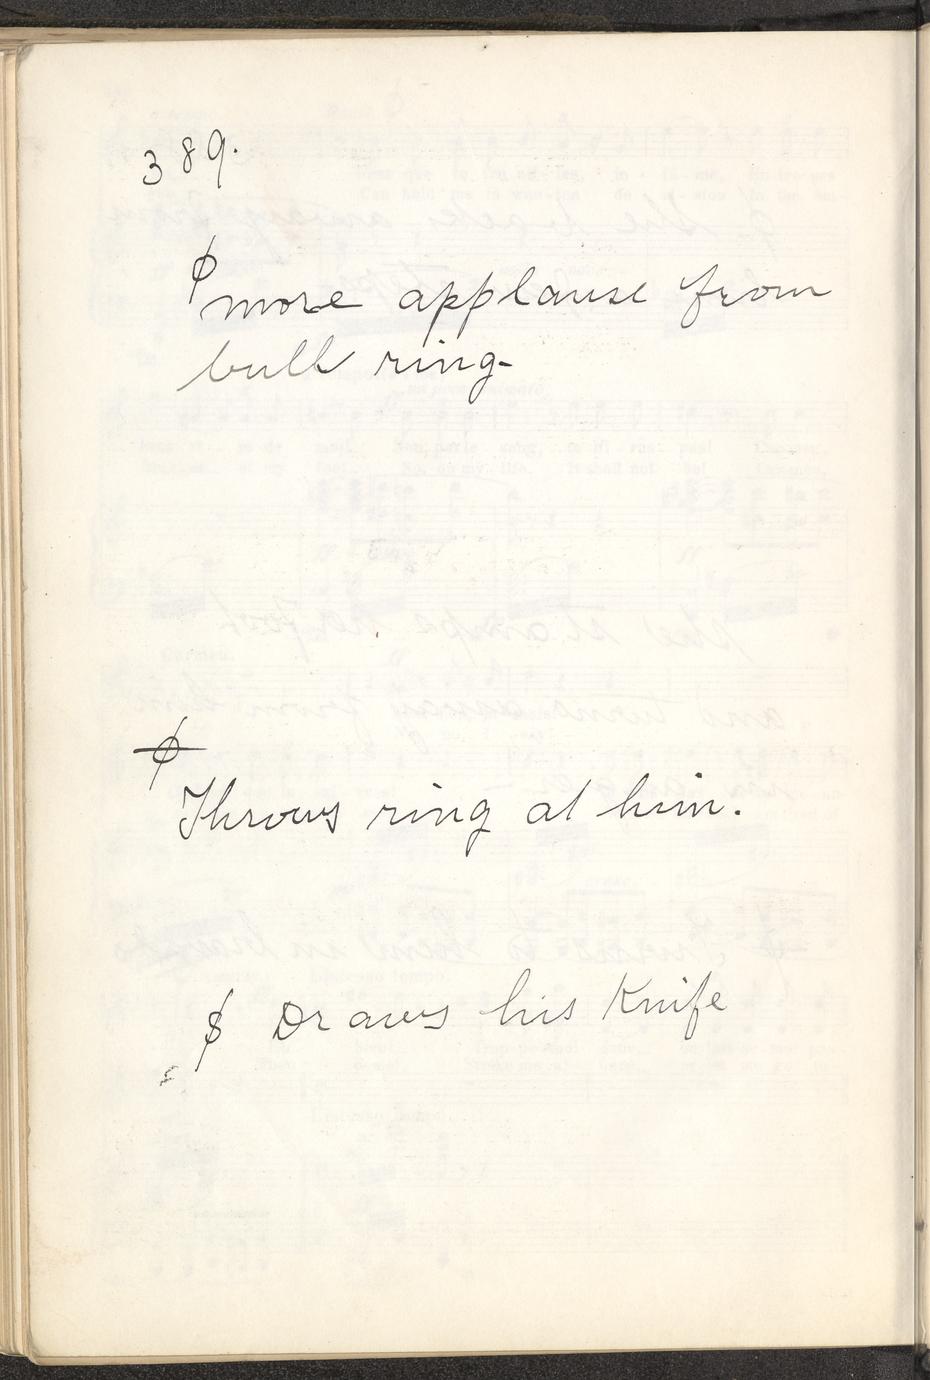 389.
ϕ more applause from
bull ring.
ϕ
Throws ring at him.
ϕ Draws his Knife